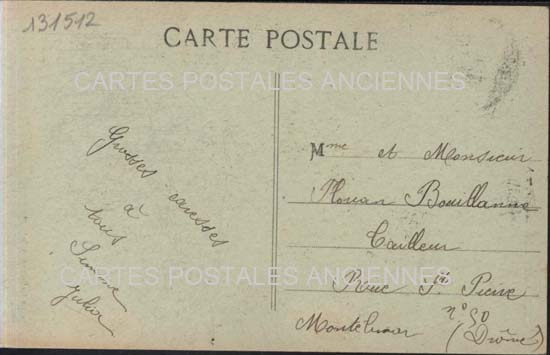 131512
CARTE POSTALE
CARTES POSTALES ANCIENNES
Grosses caresses
à
tous
Simone
Julia
Mme et Monsieur
Bouillanne
Tailleur
Rue St Pierre
n° 50
Montelimar (Drôme)
CARTES POSTALES ANCIENNES